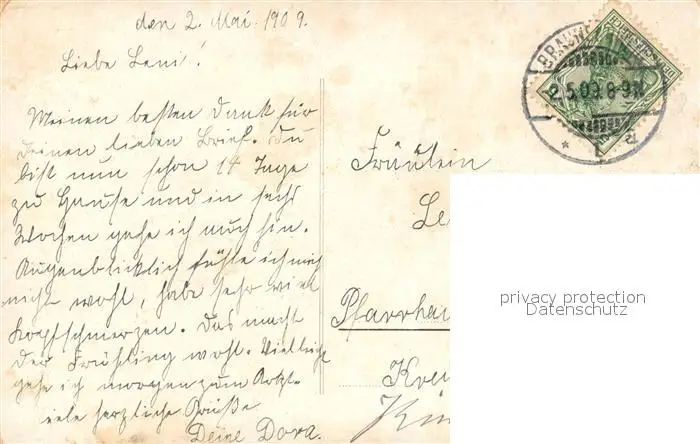 den 2. Mai. 1909.
Liebe Leni!
Meinen besten Dank für
Deinen lieben Brief. Du
bist nun schon 14 Tage
zu Hause und in sechs
Wochen gehe ich auch hin.
Augenblicklich fühle ich mich
nicht wohl, habe sehr viel
Kopfschmerzen. Das macht
der Frühling wohl. Vielleicht
gehe ich morgen zum Arzt.
viele herzliche Grüße
Deine Dora.
BRAUN
2.5.09.8-9N
Fräulein
Le
Pfarrhau
Kre
privacy protection
Datenschutz